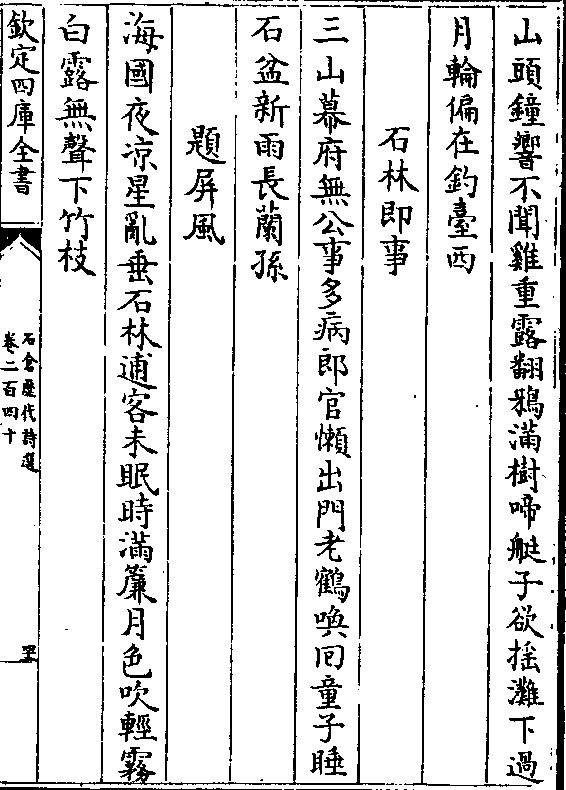 山頭鐘響不聞雞重露翻鴉滿樹啼艇子欲搖灘下過
月輪偏在釣臺西
石林即事
三山幕府無公事多病郎官懶出門老鶴喚囘童子睡
石盆新雨長蘭孫
題屏風
海國夜凉星亂垂石林逋客未眠時滿簾月色吹輕霧
白露無聲下竹枝
欽定四庫全書
石倉歷代詩選
卷二百四十